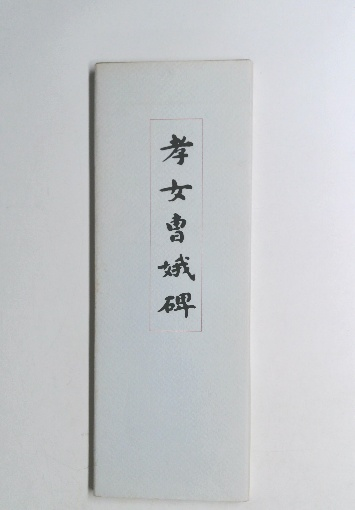 孝女曹娥碑